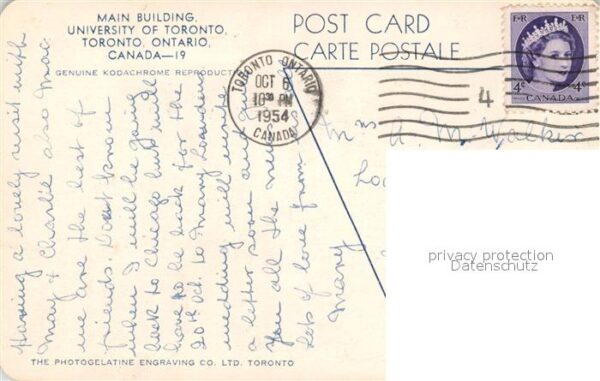 MAIN BUILDING,
UNIVERSITY OF TORONTO,
TORONTO, ONTARIO,
CANADA—19
GENUINE KODACHROME REPRODUCT
POST CARD
CARTE POSTALE
TORONTO ONTARIO
OCT 6
10 30 PM
1954
CANADA
4
E R E R
4¢ 4¢
CANADA
Mrs A M. Walker
Lo
Having a lovely visit with
May & Charlie also Mac
we are the best of
friends. Don't know
when I will be going
back to Chicago but will
have to be back for the
20th Oct. to Mary
wedding will write
a letter soon and
you all the news
Lots of love from
Mary
privacy protection
Datenschutz
THE PHOTOGELATINE ENGRAVING CO. LTD. TORONTO